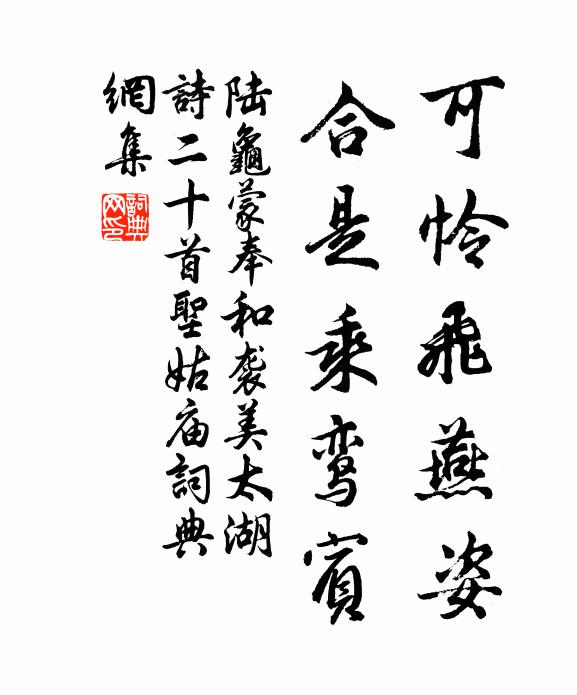 可怜飛燕姿
合是乘鸾賓
陆龜蒙奉和袭美太湖
詩二十首聖姑庙詞典
網集
詞典网印